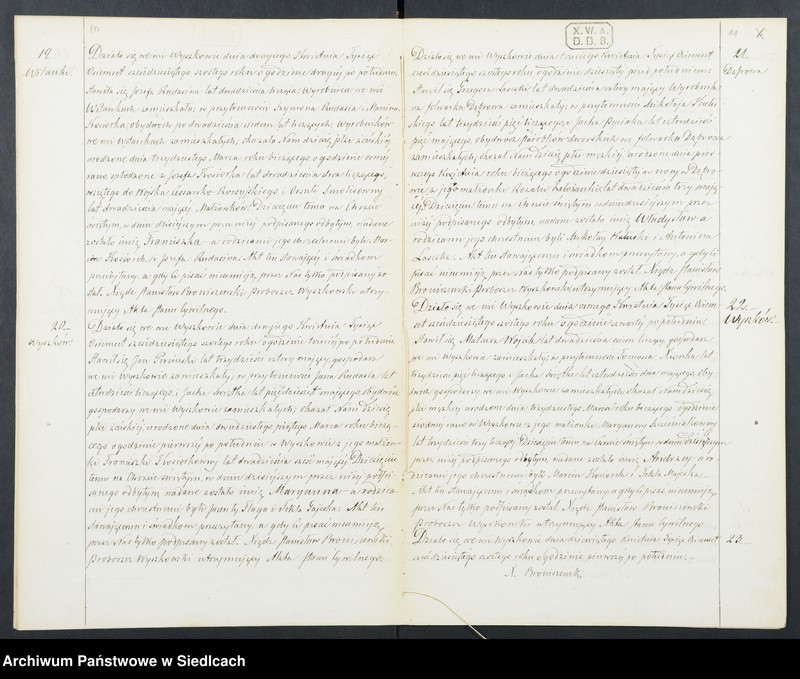 19.
Witanki.
Działo się we wsi Wyszkowie dnia drugiego Kwietnia Tysiąc
Ośmset sześćdziesiątego szóstego roku o godzinie drugiej po południu.
Stawiła się Józefa Rudasia lat dwadzieścia
zamieszkała, w przytomności Szymona Rudasia i Marcina
Kosiorka obydwóch po dwadzieścia siedm lat liczących, Wyrobników
we wsi Witankach zamieszkałych, i okazała Nam dziecię płci żeńskiej
urodzone dnia trzydziestego Marca roku bieżącego o godzinie ósmej
rano z Józefa Kosiorka lat dwadzieścia dwa liczącego,
wziętego do Wojska Cesarsko Rossyjskiego, i Urszuli
lat dwadzieścia mającej, Małżonków. Dziecięciu temu na Chrzcie
świętym, w dniu dzisiejszym przez niżej podpisanego odbytym, nadane
zostało imię Franciszka a rodzicami jego chrzestnemi byli Mar-
cin Kosiorek i Józefa Rudasia. Akt ten stawającej i świadkom
przeczytany, a gdy ci pisać nieumieją, przez Nas tylko podpisany zo-
stał. Xiądz Stanisław Broniszewski Proboszcz Wyszkowski utrzy-
mujący Akta Stanu Cywilnego.
20.
Wyszków.
Działo się we wsi Wyszkowie dnia drugiego Kwietnia Tysiąc
Ośmset sześćdziesiątego szóstego roku o godzinie trzeciej po południu
Stawił się Jan lat trzydzieści cztery mający, gospodarz
we wsi Wyszkowie zamieszkały, w przytomności Jana Rudasia lat
czterdzieści liczącego, i Jacka Świątka lat pięćdziesiąt mającego, obydwóch
gospodarzy we wsi Wyszkowie zamieszkałych, i okazał Nam dziecię
płci żeńskiej, urodzone dnia dwudziestego piątego Marca roku bieżą-
cego o godzinie pierwszej po południu w Wyszkowie z jego małżon-
ki Franciszki Kosiorkówny lat dwadzieścia sześć mającej. Dziecięciu
temu na Chrzcie świętym, w dniu dzisiejszym przez niżej podpi-
sanego odbytym, nadane zostało imię Maryanna a rodzica-
mi jego chrzestnemi byli i Tekla Gajecka. Akt ten
stawającemu i świadkom przeczytany, a gdy ci pisać nieumieją,
przez Nas tylko podpisany został. Xiądz Stanisław Broniszewski
Proboszcz Wyszkowski utrzymujący Akta Stanu Cywilnego.
X. W. A.
D. D. S.
21.
Dąbrowa
Działo się we wsi Wyszkowie dnia trzeciego Kwietnia Tysiąc Ośmset
sześćdziesiątego szóstego roku o godzinie dziesiątej przed południem.
Stawił się Grzegorz Lasek lat dwadzieścia cztery mający Wyrobnik
na folwarku Dąbrowa zamieszkały, w przytomności Mikołaja
lat trzydzieści pięć liczącego i Jacka lat czterdzieści
pięć mającego, obydwóch parobków dworskich na folwarku Dąbrowa
zamieszkałych, i okazał Nam dziecię płci męskiej, urodzone dnia pier-
wszego Kwietnia roku bieżącego o godzinie dziesiątej w nocy w Dąbro-
wie z jego małżonki Rozalii lat dwadzieścia trzy mają-
cej. Dziecięciu temu na Chrzcie świętym w dniu dzisiejszym przez
niżej podpisanego odbytym, nadane zostało imię Władysław a
rodzicami jego chrzestnemi byli Mikołaj i Antonina
Lasek. Akt ten stawającemu i świadkom przeczytany, a gdy ci
pisać nieumieją przez Nas tylko podpisany został. Xiądz Stanisław
Broniszewski Proboszcz Wyszkowski utrzymujący Akta Stanu Cywilnego.
22.
Wyszków.
Działo się we wsi Wyszkowie dnia ósmego Kwietnia Tysiąc Ośm-
set sześćdziesiątego szóstego roku o godzinie czwartej po południu
Stawił się Mateusz Wojcik lat dwadzieścia ośm liczący, gospodarz
we wsi Wyszkowie zamieszkały, w przytomności Tomasza lat
trzydzieści pięć liczącego i Jacka Świątka lat czterdzieści dwa mającego, oby-
dwóch gospodarzy we wsi Wyszkowie zamieszkałych, i okazał Nam dziecię
płci męskiej urodzone dnia trzydziestego Marca roku bieżącego o godzinie
siódmej rano w Wyszkowie z jego małżonki Maryanny
lat trzydzieści trzy liczącej. Dziecięciu temu na Chrzcie świętym w dniu dzisiejszym
przez niżej podpisanego odbytym, nadane zostało imię Andrzej a ro-
dzicami jego chrzestnemi byli Marcin Kosiorek i Tekla
Akt ten stawającemu i świadkom przeczytany, a gdy ci pisać nieumieją,
przez Nas tylko podpisany został. Xiądz Stanisław Broniszewski
Proboszcz Wyszkowski utrzymujący Akta Stanu Cywilnego.
23.
Działo się we wsi Wyszkowie dnia dziewiątego Kwietnia Tysiąc Ośmset
sześćdziesiątego szóstego roku o godzinie pierwszej po południu.
X. Broniszewski
Archiwum Państwowe w Siedlcach